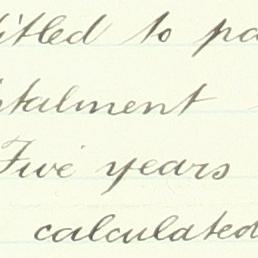 itled to pa
stalment
Five years
calculated